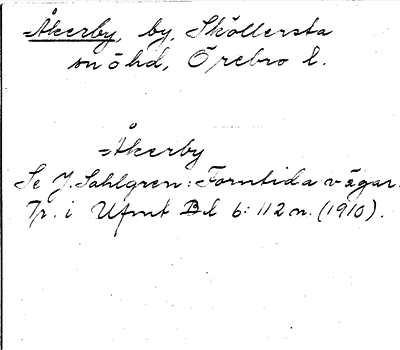 =Åkerby, by, Sköllersta
sn ö hd, Örebro l.
=Åkerby
Se J. Sahlgren: Forntida vägar.
Tr. i Ufmt Bd 6: 112 n. (1910).